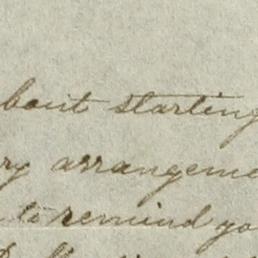 bout starting
ry arrangeme
to remind yo